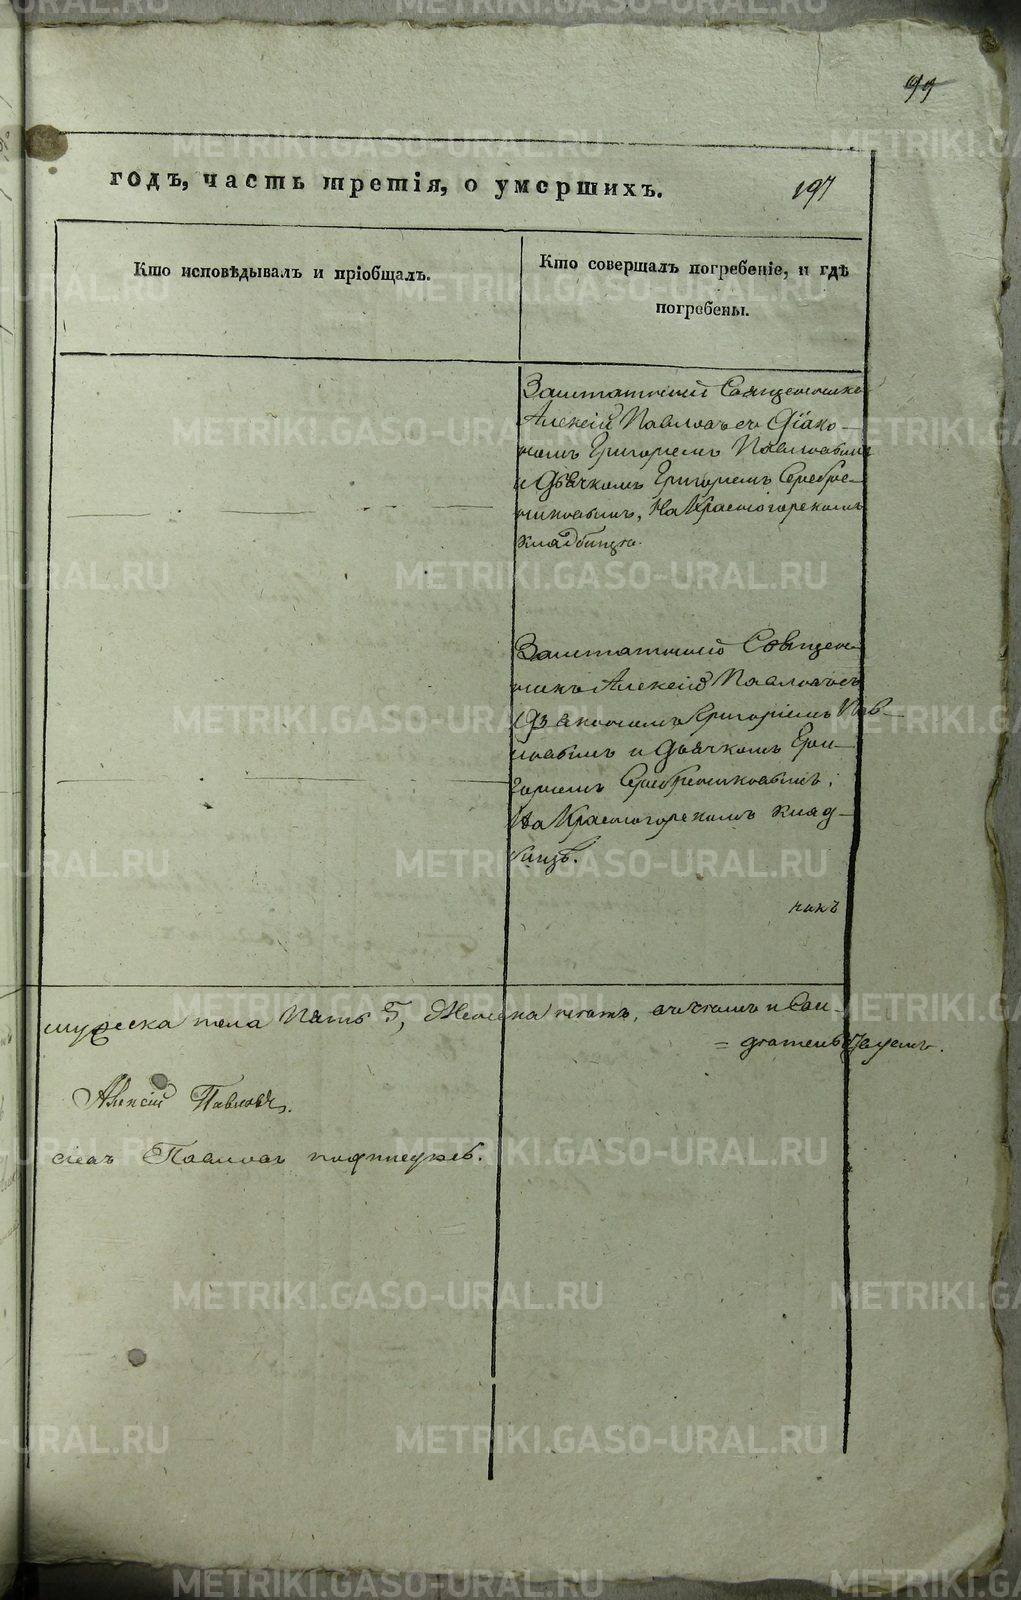 99
годъ, часть третія, о умершихъ.
197
Кто исповѣдывалъ и пріобщалъ.
Кто совершалъ погребеніе, и гдѣ
погребены.
Заштатный Священникъ
Алексій Павловъ съ Діако-
номъ Григоріемъ Павловымъ
и Дьячкомъ Григоріемъ Серебре-
никовымъ, На Красногорскомъ
кладбище.
Заштатный Священ-
никъ Алексій Павловъ съ
Діакономъ Григоріемъ Пав-
ловымъ и Дьячкомъ Гри-
горіемъ Серебрениковымъ,
На Красногорскомъ клад-
бищѣ.
никъ
мужеска пола Пять 5, Женска
Алексій Павловъ.
Павловъ
METRIKI.GASO-URAL.RU